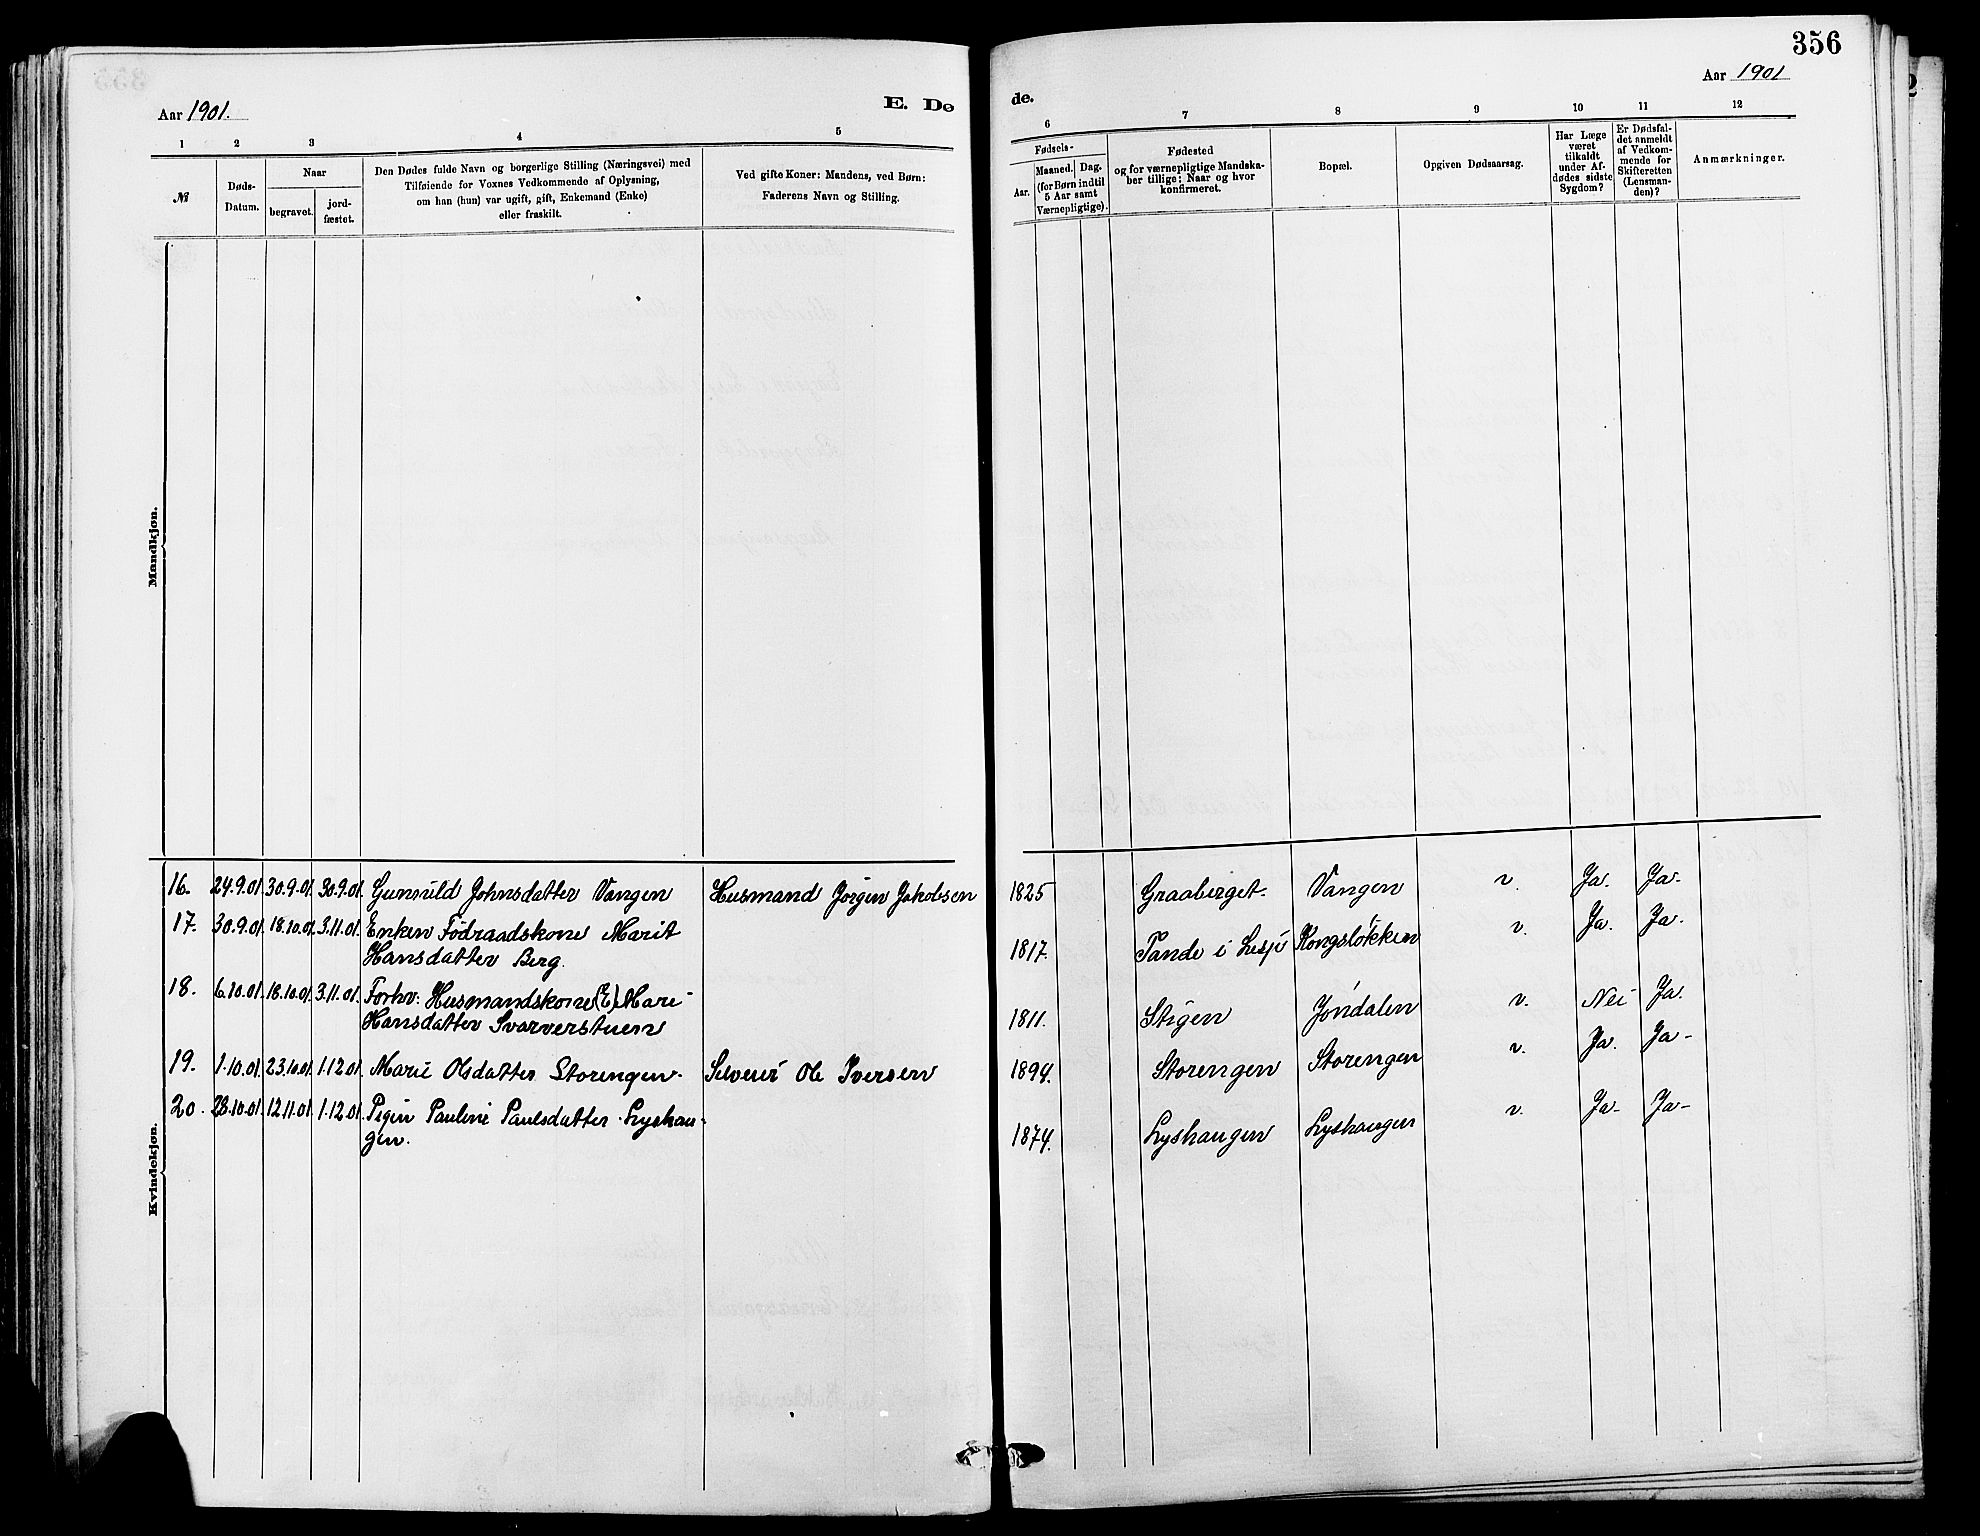 356
Aar 1901.
E. Dø
de.
Aar 1901
1 2 3 4 5
6 7 8 9 10 11 12
№
Døds-
Datum.
Naar
begravet.
jord-
fæstet.
Den Dødes fulde Navn og borgerlige Stilling (Næringsvei) med
Tilføiende for Voxnes Vedkommende af Oplysning,
om han (hun) var ugift, gift, Enkemand (Enke)
eller fraskilt.
Ved gifte Koner: Mandens, ved Børn:
Faderens Navn og Stilling.
Fødsels-
Aar.
Maaned.
Dag.
(for Børn indtil
5 Aar samt
Værnepligtige).
Fødested
og for værnepligtige Mandska-
ber tillige: Naar og hvor
konfirmeret.
Bopæl.
Opgiven Dødsaarsag.
Har Læge
været
tilkaldt
under Af-
dødes sidste
Sygdom?
Er Dødsfal-
det anmeldt
af Vedkom-
mende for
Skifteretten
(Lensman-
den)?
Anmærkninger.
Mandkjøn.
Kvindekjøn.
16. 24.9.01. 30.9.01. 30.9.01. Gunnuld Johnsdatter Vangen Husmand Jørgen Jakobsen 1825 Graaberget. Vangen v. Ja. Ja.
17. 30.9.01. 18.10.01. 3.11.01. Enken Födraadskone Marit
Hansdatter Berg. 1817. Tande i Lesje Kongsløkken v. Ja. Ja.
18. 6.10.01. 18.10.01. 3.11.01. Forhv: Husmandskone (E) Mari
Hansdatter Svarverstuen 1811. Stigen Jøndalen v. Nei Ja.
19. 1.10.01. 23.10.01. 1.12.01. Marie Olsdatter Storengen. Selveier Ole Iversen 1894. Storengen Storengen v. Ja. Ja-
20. 28.10.01. 12.11.01. 1.12.01. Pigen Pauline Paulsdatter Lyshau-
gen. 1874. Lyshaugen Lyshaugen v. Ja- Ja-